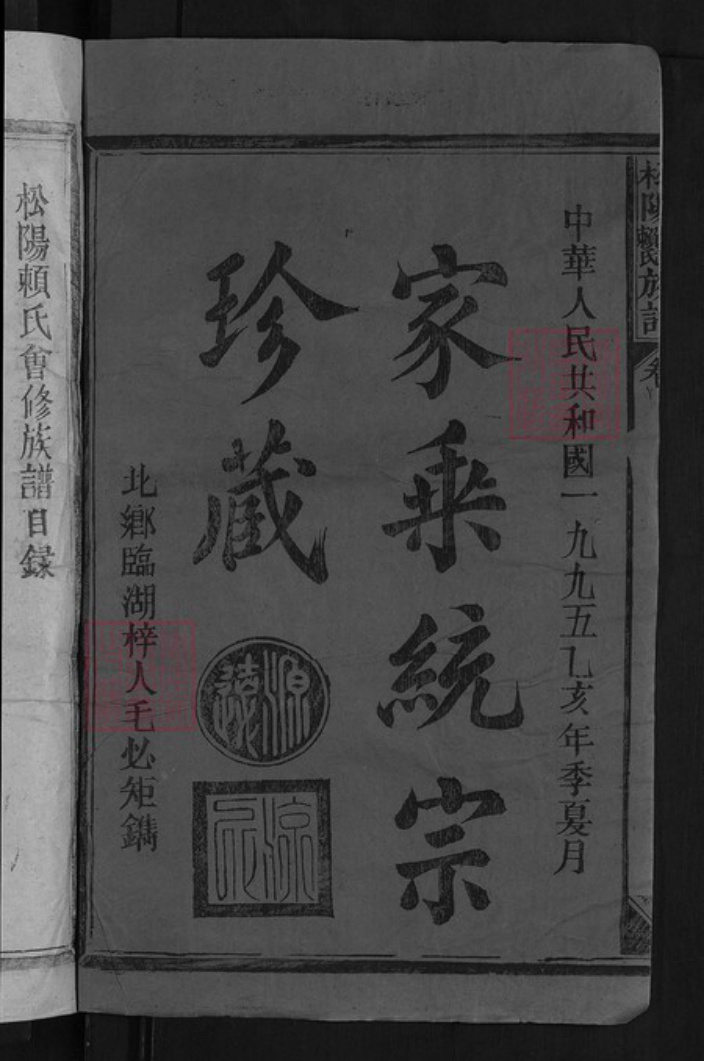 松陽賴氏族譜
卷
中華人民共和國一九九五乙亥年季夏月
家乘統宗
珍藏
源遠
北鄉臨湖梓人毛必矩鐫
松陽賴氏會修族譜目録